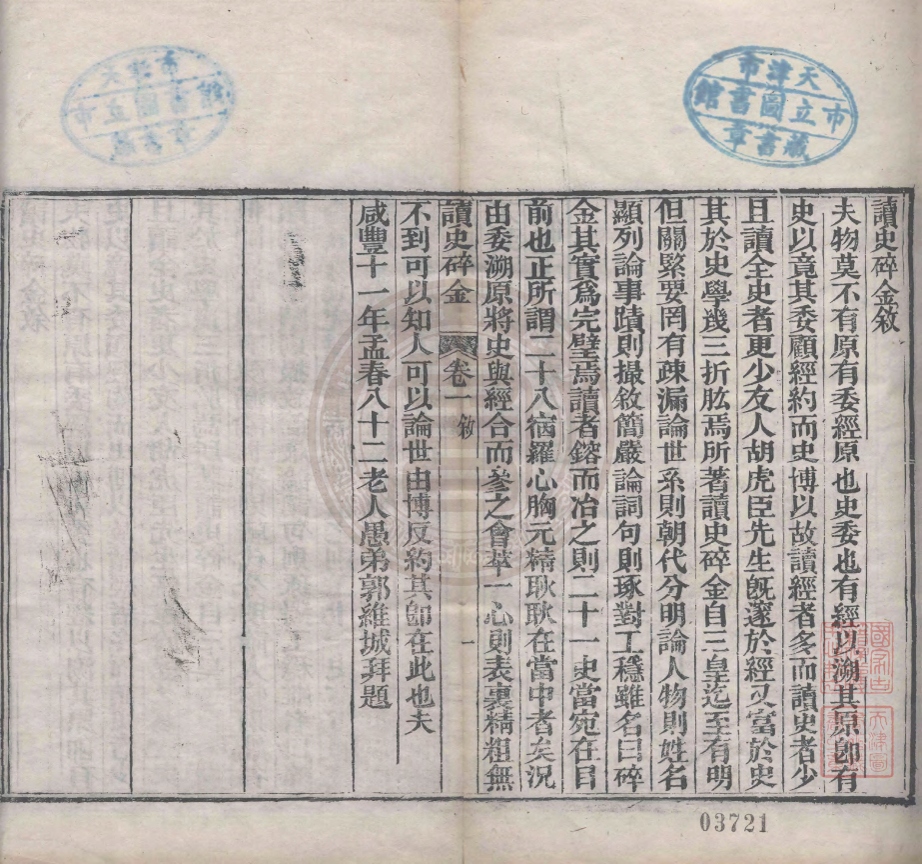 讀史碎金敘
夫物莫不有原有委經原也史委也有經以溯其原卽有
史以竟其委顧經約而史博以故讀經者多而讀史者少
且讀全史者更少友人胡虎臣先生旣邃於經又富於史
其於史學幾三折肱焉所著讀史碎金自三皇迄至有明
但關緊要罔有疎漏論世系則朝代分明論人物則姓名
顯列論事蹟則撮敘簡嚴論詞句則琢對工穩雖名曰碎
金其實爲完璧焉讀者鎔而冶之則二十一史當宛在目
前也正所謂二十八宿羅心胸元精耿耿在當中者矣況
由委溯原將史與經合而參之會萃一心則表裏精粗無
讀史碎金 卷一敘 一
不到可以知人可以論世由博反約其卽在此也夫
咸豐十一年孟春八十二老人愚弟郭維城拜題
天津市
市立圖書館
藏書章
天津市
市立圖書館
藏書章
03721